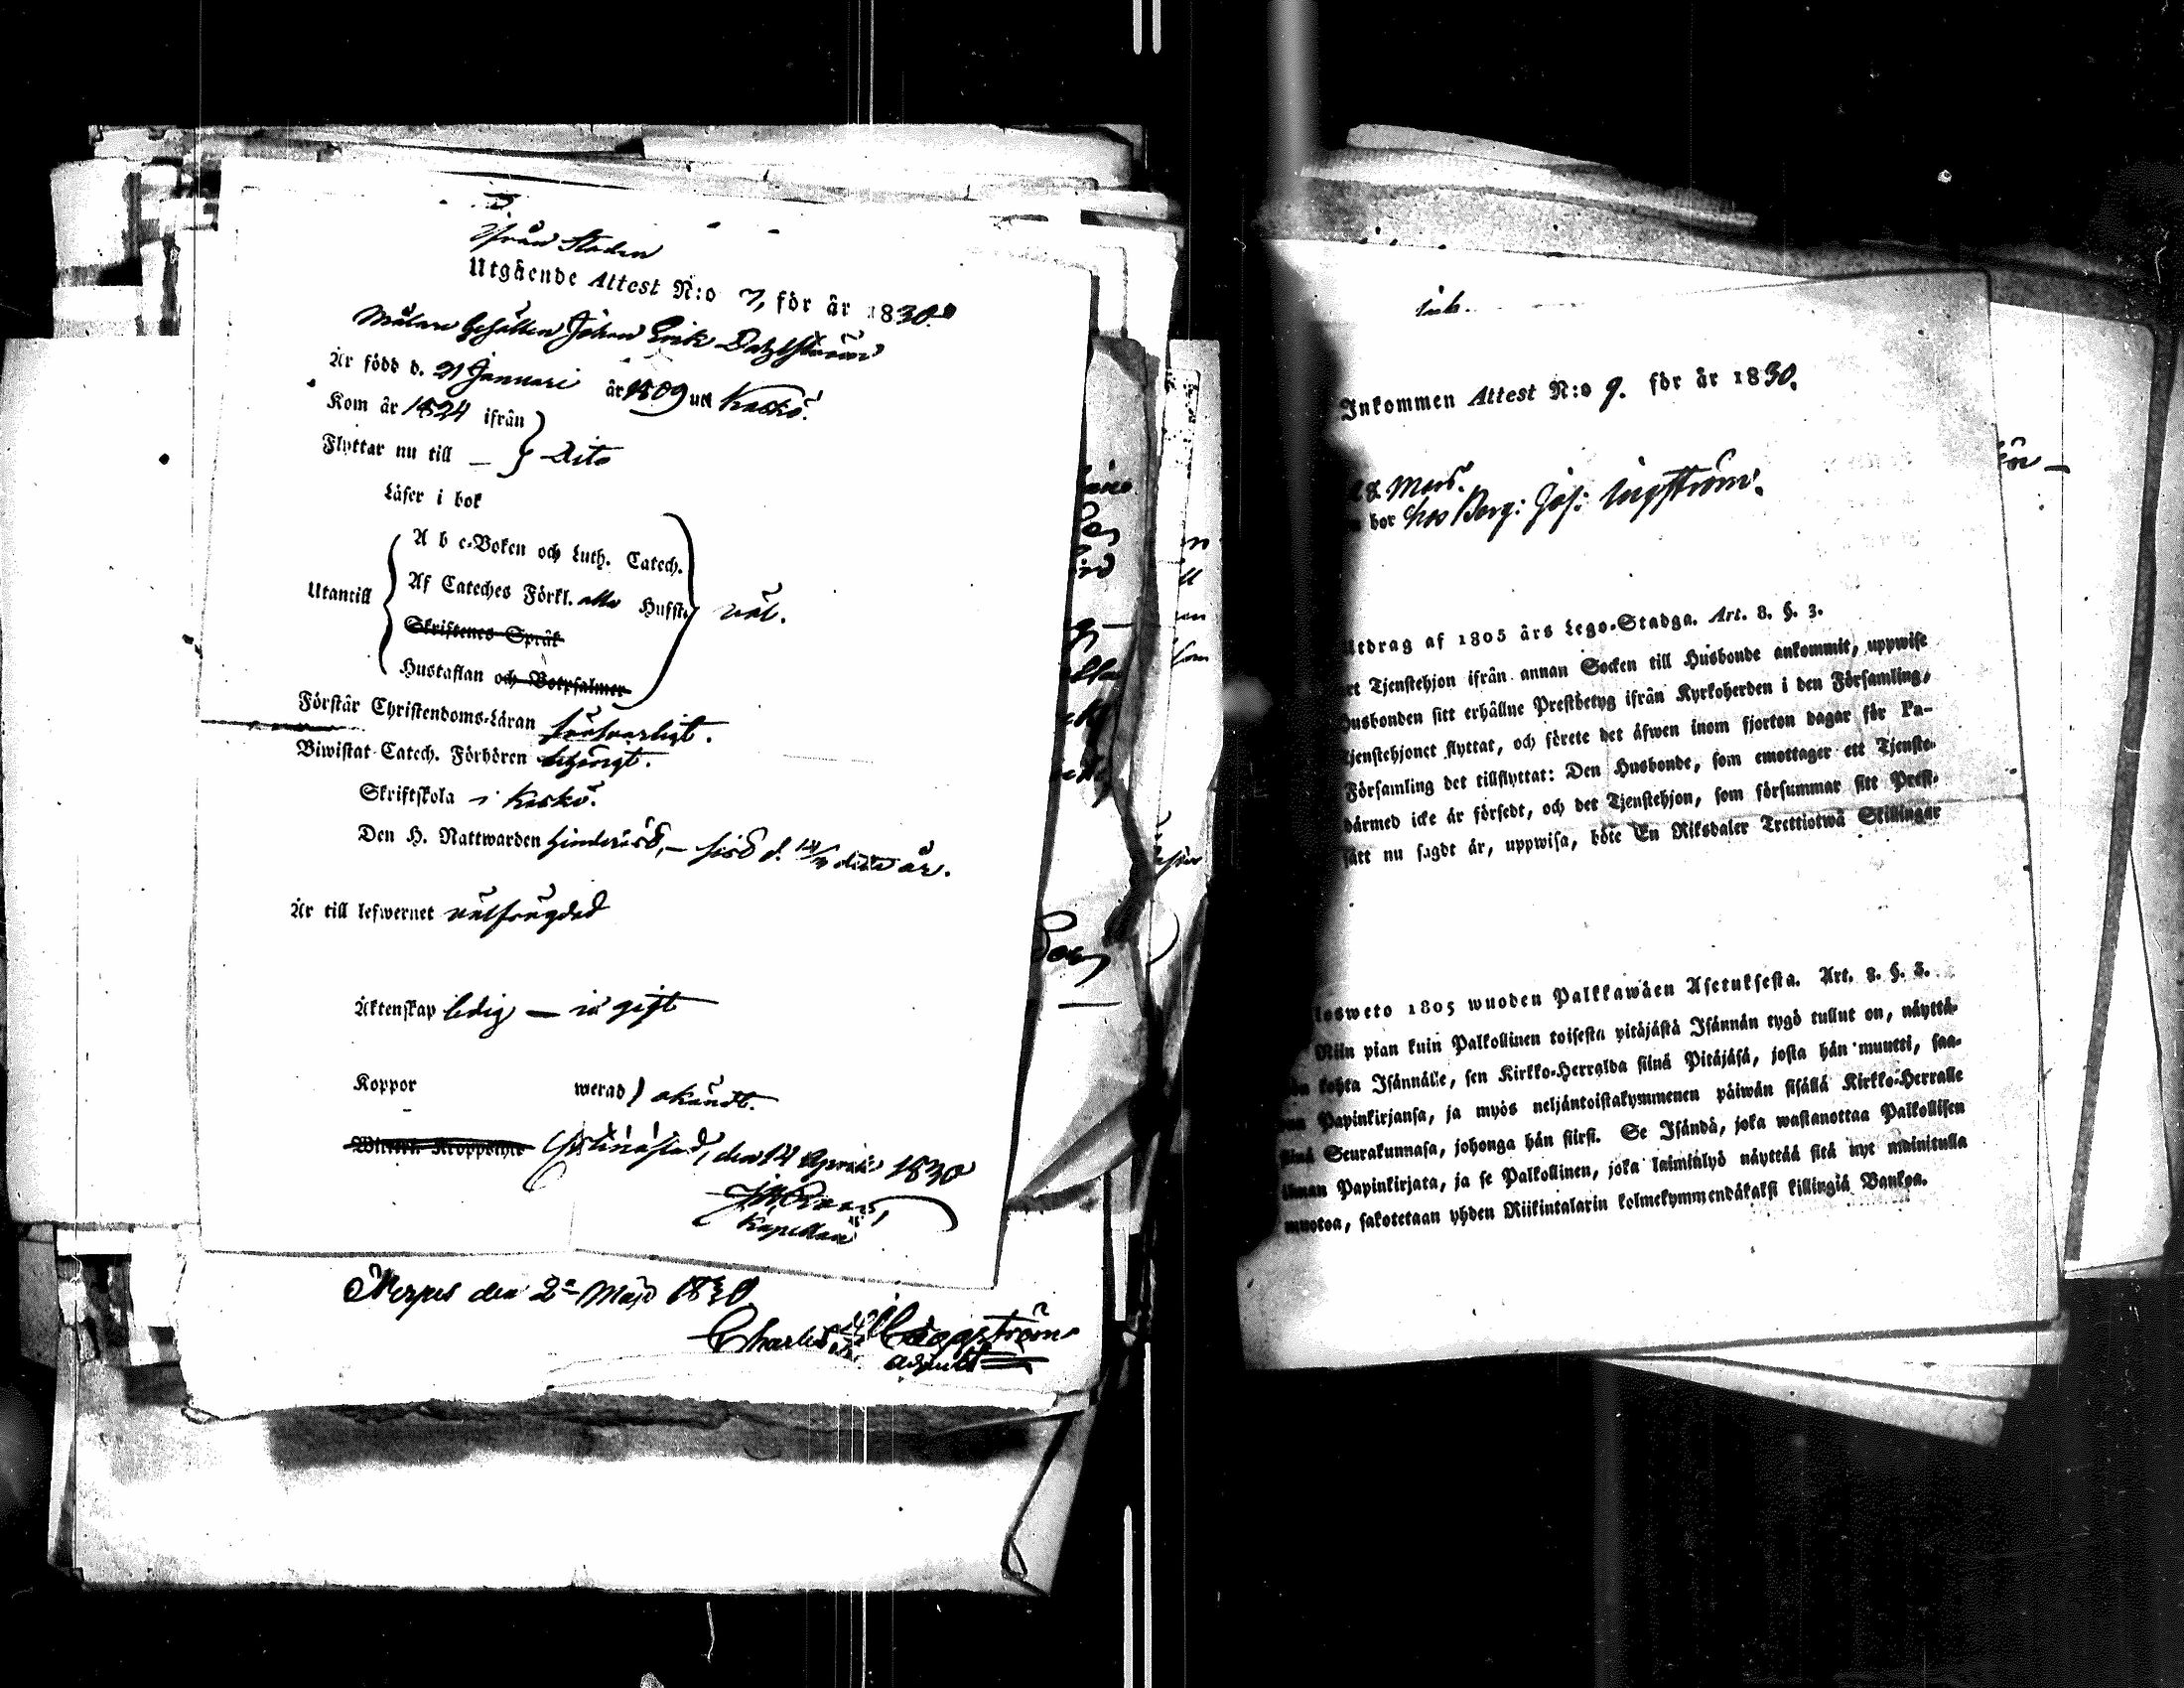 Från Staden
Utgående Attest N:o 7, för år 1830.
Målare Gesällen Johan Erik
Är född d. 21 Januari år 1809 uti Kaskö.
Kom år 1824 ifrån
Flyttar nu till — } Dito
Läser i bok
A b c-Boken och Luth. Catech.
Utantill Af Cateches Förkl. alla Husst. väl.
Skriftenes Språk
Hustaflan och Botpsalmer
Förstår Christendoms-Läran försvarligt.
Biwistat Catech. Förhören behörigt.
Skriftskola i Kaskö.
Den H. Nattwarden hindersd, — sist d. detta år.
Är till lefwernet välfrägdad
Äktenskap ledig — ej gift
Koppor werad } okändt.
Christinæstad, den 14 April 1830
Kapellan
Nerpes den 2 Mars 1830
Charles Häggström
adjunkt
Ink.
Inkommen Attest N:o 9. för år 1830.
Mars.
bor hos Borg: Joh:
Utdrag af 1805 års Lego-Stadga. Art. 8. §. 3.
Tjenstehjon ifrån annan Socken till Husbonde ankommit, uppwise
Husbonden sitt erhållne Prestbetyg ifrån Kyrkoherden i den Församling,
Tjenstehjonet flyttat, och förete det äfwen inom fjorton dagar för Pa-
Församling det tillflyttat: Den Husbonde, som emottager ett Tjenste-
därmed icke är försedt, och det Tjenstehjon, som försummar sitt Prest-
sätt nu sagdt är, uppwisa, böte En Riksdaler Trettiotwå Skillingar
Ulosweto 1805 wuoden Palkkawäen Asetuksesta. Art. 8. §. 3.
Niin pian kuin Palkollinen toisesta pitäjästä Isännän tygö tullut on, näyttä-
kohta Isännälle, sen Kirkko-Herralda siinä Pitäjäsä, josta hän muutti, saa-
Papinkirjansa, ja myös neljäntoistakymmenen päiwän sisällä Kirkko-Herralle
siinä Seurakunnasa, johonga hän siirsi. Se Isändä, joka wastanottaa Palkollisen
ilman Papinkirjata, ja se Palkollinen, joka laiminlyö näyttää sitä nyt mainitulla
muotoa, sakotetaan yhden Riikintalarin kolmekymmendäkaksi killingiä Bankoa.